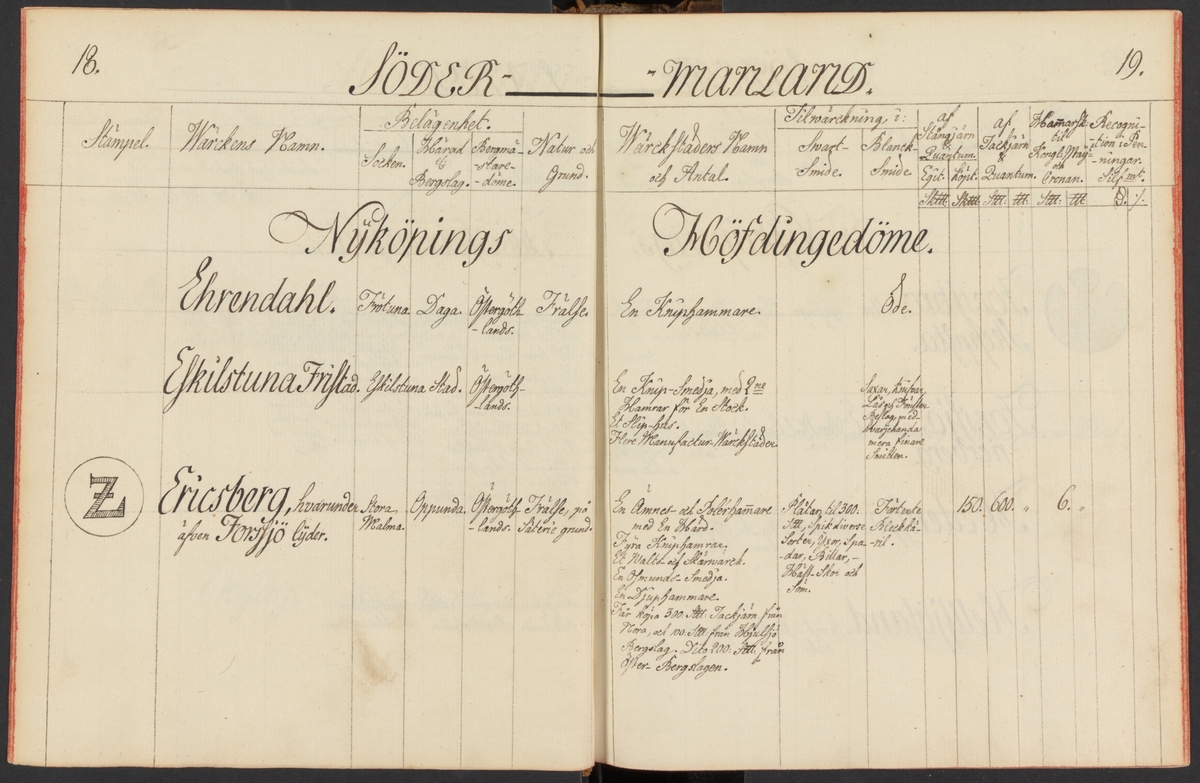 18.
SÖDER-
-MANLAND.
19.
Stämpel.
Wärckens Namn.
Belägenhet.
Socken.
Härad
&
Bergslag.
Bergmä-
-stare-
-döme.
Natur och
Grund.
Wärckstäders Namn
och Antal.
Tilwärckning i:
Swart
Smide.
Blanck
Smide.
af
Stångjärn
&
Quantum.
Egit. Köpt.
af
Tackjärn
&
Quantum.
Hamarsk:
til
Kongl. Maj:
och
Cronan.
Recogni-
tion i Pen-
ningar.
Silf. mt.
Nyköpings
Höfdingedöme.
Ehrendahl.
Frötuna
Daga.
Östergöth-
-lands.
Frälse.
En Kniphammare.
Öde.
Eskilstuna Fristad.
Eskilstuna Stad.
Östergöth-
-lands.
En Knip-Smedja, med 2ne
Hamrar för En Stock.
Et Slip-hus.
Flere Manufactur-Wärckstäder.
Saxar, Knifvar,
Lås och Fönster
Beslag, med
hvarjehanda
mera finare
Smiden.
Z
Ericsberg, hvarunder
äfven Forssjö lyder.
Stora
Malma.
Oppunda.
Östergöth-
-lands.
Frälse, på
Säterie grund.
En Ämnes- och Polerhammare
med En Härd.
Fyra Kniphamrar.
Et Walts- och Skärwärck.
En Osmunds-Smedja.
En Djuphammare.
Får köpa 300. Stt. Tackjärn från
Nora, och 100. Stt. från Hjulsjö
Bergslag. Dito 200. Stt. från
Öster-Bergslagen.
Plåtar til 300.
Stt, Spik diverse
Sorter, Yxor, Spa-
-dar, Billar,-
Häst-Skor och
Söm.
Förtente
Bleckkä-
-ril.
150. 600. „ 6. „